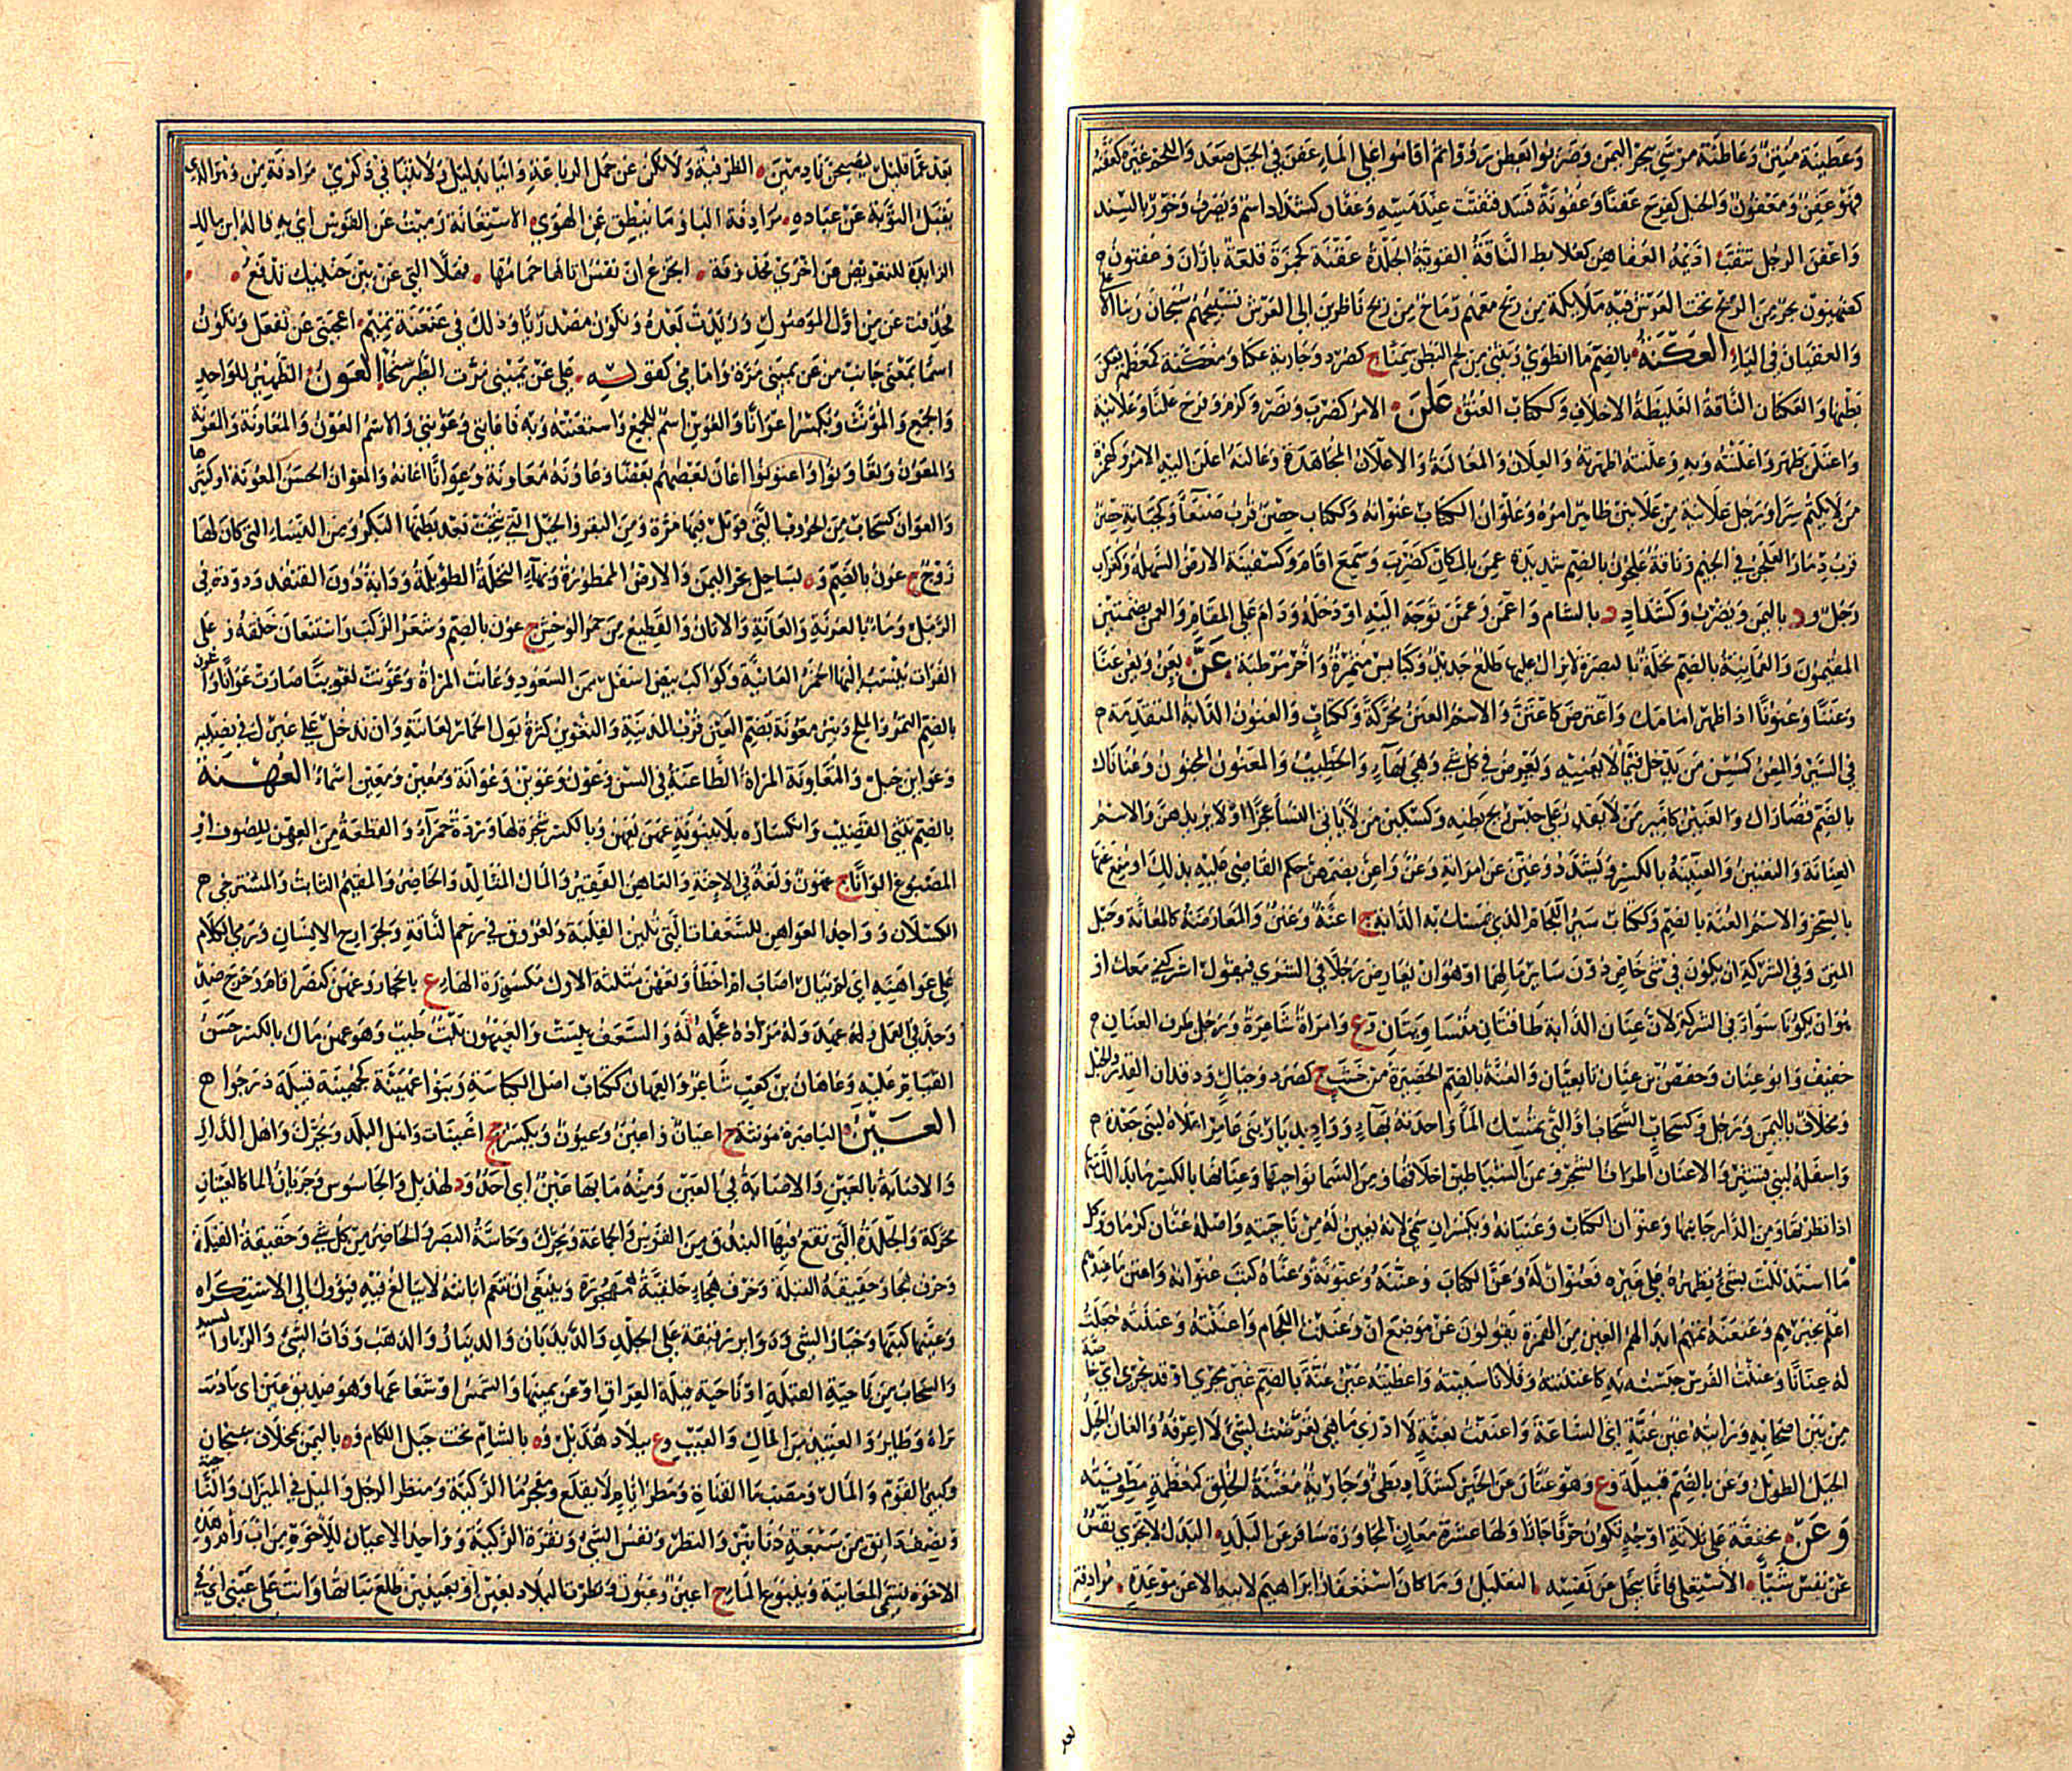 وعطينة منتن وعاطنة مرسى ببحر اليمن وضربوا بعطن رووا ثم اقاموا على الماء عفن في الجبل صعد واللحم غيره كعفنه
فهو عفن ومعفون والحبل كفرح عفنا وعفونة فسد فتفتت عند مسه وعفان كشداد اسم ويصرف وخور بالسند
واعفن الرجل تثقب اديمه العفاهن كعلابط الناقة القوية الجلدة عقنة كحمزة قلعة باران وعقنون
كعنهبون بحر من الريح تحت العرش فيه ملايكة من ريح معهم رماح من ريح ناظرين الى العرش تسبيحهم سبحان ربنا الاعلى
والعقبان في الباء العكنة بالضم ما انطوى وتثنى من لحم البطن سمنا ج كصرد وجارية عكنا ومعكنة كمعظمة تعكن
بطنها والعكنان الناقة الغليظة الاخلاف وككتاب العنق علن الامر كضرب ونصر وكرم وفرح علنا وعلانية
واعتلن ظهر واعلنته وبه وعلنته اظهرته والعلان والمعالنة والاعلان المجاهدة وعالنه اعلن اليه الامر وكهمزة
من لا يكتم سرا ورجل علانية من علانين ظاهر امره وعلوان الكتاب عنوانه وككتاب حصن قرب صنعا وكجبانة حصن
قرب ذمار العلجن في الجيم وناقة علجون بالضم شديدة عمن بالمكان كضرب وسمع اقام وكسفينة الارض السهلة وكغراب
رجل ود باليمن ويصرف وكشداد د بالشام واعمن وعمن توجه اليه او دخله ودام على المقام والعمن بضمتين
المقيمون والعمانية بالضم نخلة بالبصرة لا يزال عليها طلع جديد وكبايس مثمرة واخر مرطبة عن يعن ويعن عنا
وعننا وعنونا اذا ظهر امامك واعترض كاعتن والاسم العنن محركة وككتاب والعنون الدابة المتقدمة
في السير والمعن كمسن من يدخل فيما لا يعنيه ويعرض في كل شي وهي بهاء والخطيب والمعنون المجنون وعناناك
بالضم قصاراك والعنين كامير من لا يقدر على حبس ريح بطنه وكسكين من لا ياتي النسا عجزا او لا يريدهن والاسم
العنانة والتعنين والعنينة بالكسر ويشدد وعنن عن امراته وعن واعن بضمهن حكم القاضي عليه بذلك او منع عنها
بالسحر والاسم العنة بالضم وككتاب سير اللجام الذي تمسك به الدابة ج اعنة وعنن والمعارضة كالمعانة وحبل
المتن وفي الشركة ان يكون في شي خاص دون ساير مالهما او هو ان يعارض رجلا في الشرى فيقول اشركني معك او
هو ان يكونا سواء في الشركة لان عنان الدابة طاقتان متساويتان وع وامراة شاعرة ورجل طرف العنان
خفيف وابو عنان وحفص بن عنان تابعيان والعنة بالضم الحظيرة من خشب ج كصرد وجبال ودقدان القدر والحبل
ومخلاف باليمن ورجل وكسحاب السحاب او التي تمسك الما واحدته بهاء وواد بديار بني عامر اعلاه لبني جعدة
واسفله لبني قشير والاعنان اطراف الشجر ومن الشياطين اخلاقها ومن السما نواحيها وعنانها بالكسر ما بدا لك منها
اذا نظرتها ومن الدار جانبها وعنوان الكتاب وعنيانه ويكسران سمي لانه يعن له من ناحيته واصله عنان كرمان وكل
ما استدللت بشي تظهره على غيره فعنوان له وعن الكتاب وعننه وعنونه وعناه كتب عنوانه واعتن ما عندهم
اعلم بخبرهم وعنعنة تميم ابدالهم العين من الهمزة يقولون عن موضع ان وعننت اللجام واعننته وعننته جعلت
له عنانا وعننت الفرس حبسته به كاعننته وفلانا سببته واعطيته عين عنة بالضم غير مجرى او قد تجرى اي خاصة
من بين اصحابه ورايته عين عنة اي الساعة واعننت بعنة لا ادري ما هي تعرضت لشي لا اعرفه والعان الحبل
الحبل الطويل وعن بالضم قبيلة وع وهو عنان عن الخير كشداد بطي وجارية معننة الخلق كمعظمة مطويته
وعن مخففة على ثلاثة اوجه تكون حرفا جارا ولها عشرة معان المجاوزة سافر عن البلد البدل لا تجزي نفس
عن نفس شيئا الاستعلا فانما يبخل عن نفسه التعليل وما كان استغفار ابراهيم لابيه الا عن موعدة مرادفة
بعد
بعد عما قليل ليصبحن نادمين الظرفية ولا تكن عن حمل الرباعة وانيا بدليل ولا تنيا في ذكري مرادفة من وهو الذي
يقبل التوبة عن عباده مرادفة البا وما ينطق عن الهوى الاستعانة رميت عن القوس اي به قاله ابن مالك
الزايدة للتعويض من اخرى محذوفة اتجزع ان نفس اتاها حمامها فهلا التي عن بين جنبيك تدفع
فحذفت عن من اول الموصول وزيدت بعده وتكون مصدريا وذلك في عنعنة تميم اعجبني عن تفعل وتكون
اسما بمعنى جانب من عن يميني مرة وامامي كقوله على عن يميني مرت الطير سنحا العون الظهير للواحد
والجمع والمؤنث ويكسر اعوانا والعوين اسم للجمع واستعنته وبه فاعانني وعونني والاسم العون والمعانة والمعونة
والمعون وتعاونوا واعتونوا اعان بعضهم بعضا وعاونه معاونة وعوانا اعانه والمعوان الحسن المعونة او كثيرها
والعوان كسحاب من الحروب التي قوتل فيها مرة ومن البقر والخيل التي نتجت بعد بطنها البكر ومن النساء التي كان لها
زوج ج عون بالضم وه بساحل بحر اليمن والارض الممطورة وبهاء النخلة الطويلة ودابة دون القنفد ودودة في
الرمل وماء بالعرمة والعانة الاتان والقطيع من حمر الوحش ج عون بالضم وشعر الركب واستعان حلقه وة على
الفرات ينسب اليها الخمر العانية وكواكب بيض اسفل من السعود وعانت المراة وعونت تعوينا صارت عوانا وابو عون
بالضم التمر والملح وبئر معونة بضم العين قرب المدينة والتعوين كثرة بول الحمار لعانته وان تدخل على غيرك في نصيبه
وعوا بن حبل والمتعاونة المراة الطاعنة في السن وعون وعوين وعوانة ومعين ومعين اسماء العهنة
بالضم تثني القضيب وانكساره بلا بينونة عهن يعهن وبالكسر شجرة لها وردة حمراء والقطعة من العهن للصوف او
المصبوغ الوانا ج عهون ولغة في الاحنة والعاهن الفقير والمال التالد والحاضر والمقيم الثابت والمسترخي
الكسلان وواحد العواهن للسعفات التي تلين القلبة ولعروق في رحم الناقة ولجوارح الانسان ورمى الكلام
على عواهنه اي لم يبال اصاب ام اخطا ولعهن مثلثة الاول مكسورة الهاء ع بالحجاز وعهن كنصر اقام وخرج ضد
وجد في العمل وله عهد وله مراده عجله له والسعف يبست والعيهون نبت طيب وهو عهن مال بالكسر حسن
القيام عليه وعاهان بن كعب شاعر والعهان ككتاب اصل الكباسة وبنو اعهينة كجهينة قبيلة درجوا
العين الباصرة مؤنثة ج اعيان واعين وعيون ويكسر جج اعينات واهل البلد ويحرك واهل الدار
والاصابة بالعين والاصابة في العين ومنه ما بها عين اي احد ود لهذيل والجاسوس وجريان الماء كالعينان
محركة والجلدة التي تقع فيها البندق من القوس والجماعة ويحرك وحاسة البصر والحاضر من كل شي وحقيقة القبلة
وحرف هجا وحقيقة القبلة وحرف هجاء حلقية مجهورة وينبغي ان تنعم ابانته لا يبالغ فيه فيؤول الى الاستكراه
وعينها كتبها وخيار الشي ودواير رقيقة على الجلد والديدبان والدينار والذهب وذات الشي والربا والسيد
والسحاب من ناحية القبلة او ناحية قبلة العراق او عن يمينها والشمس او شعاعها وهو صديق عين اي ما دمت
تراه وطاير والعتيد من المال والعيب وع ببلاد هذيل وه بالشام تحت جبل اللكام وه باليمن بمخلاف سنحان
وكبير القوم والمال ومصب ما القناة ومطر ايام لا يقلع ومفجر ما الركية ومنظر الرجل والميل في الميزان والناحية
ونصف دانق من سبعة دنانير والنظر ونفس الشي ونقرة الركبة وواحد الاعيان للاخوة من اب وام وهذه
الاخوة تسمى المعاينة وينبوع الماء ج اعين وعيون ونظرت البلاد بعين او بعينين طلع نباتها وانت على عيني اي في